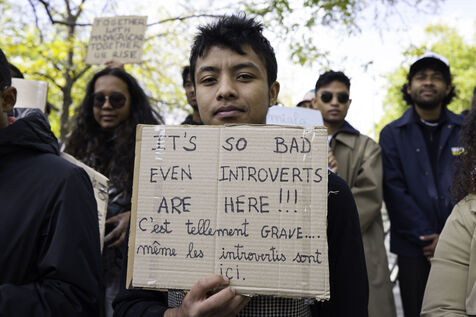 TOGETHER
WITH
MADAGASCAR
TOGETHER
WE RISE
IT'S SO BAD
EVEN INTROVERTS
ARE HERE !!!
C'est tellement GRAVE....
même les introvertis sont
ici.